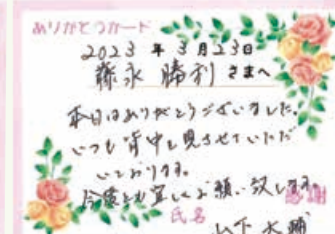 ありがとうカード
2023年3月23日
藤永 勝利 さまへ
本日はありがとうございました。
いつも背中を見させていただ
いております。
今後とも宜しくお願い致します。
感謝
氏名
山下 大輔